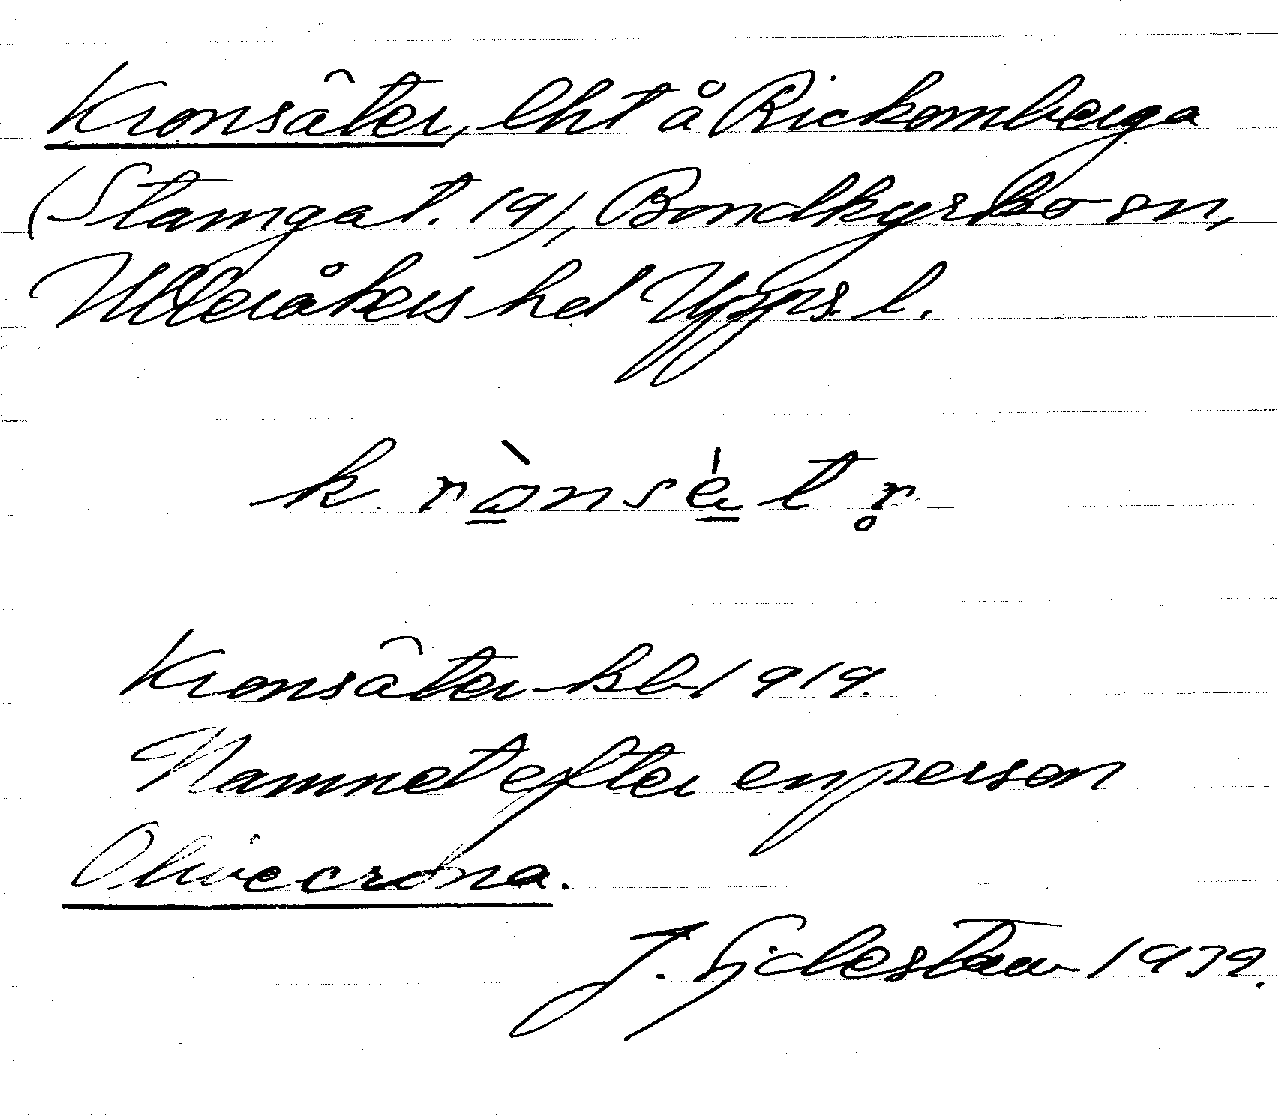 Kronsäter, lht å Rickomberga
(Stamgat. 19), Bondkyrko sn,
Ulleråkers hd Upps. l.
krònsètr̥
Kronsäter kb 1919.
Namnet efter en person
Olivecrona.
J. 1939.